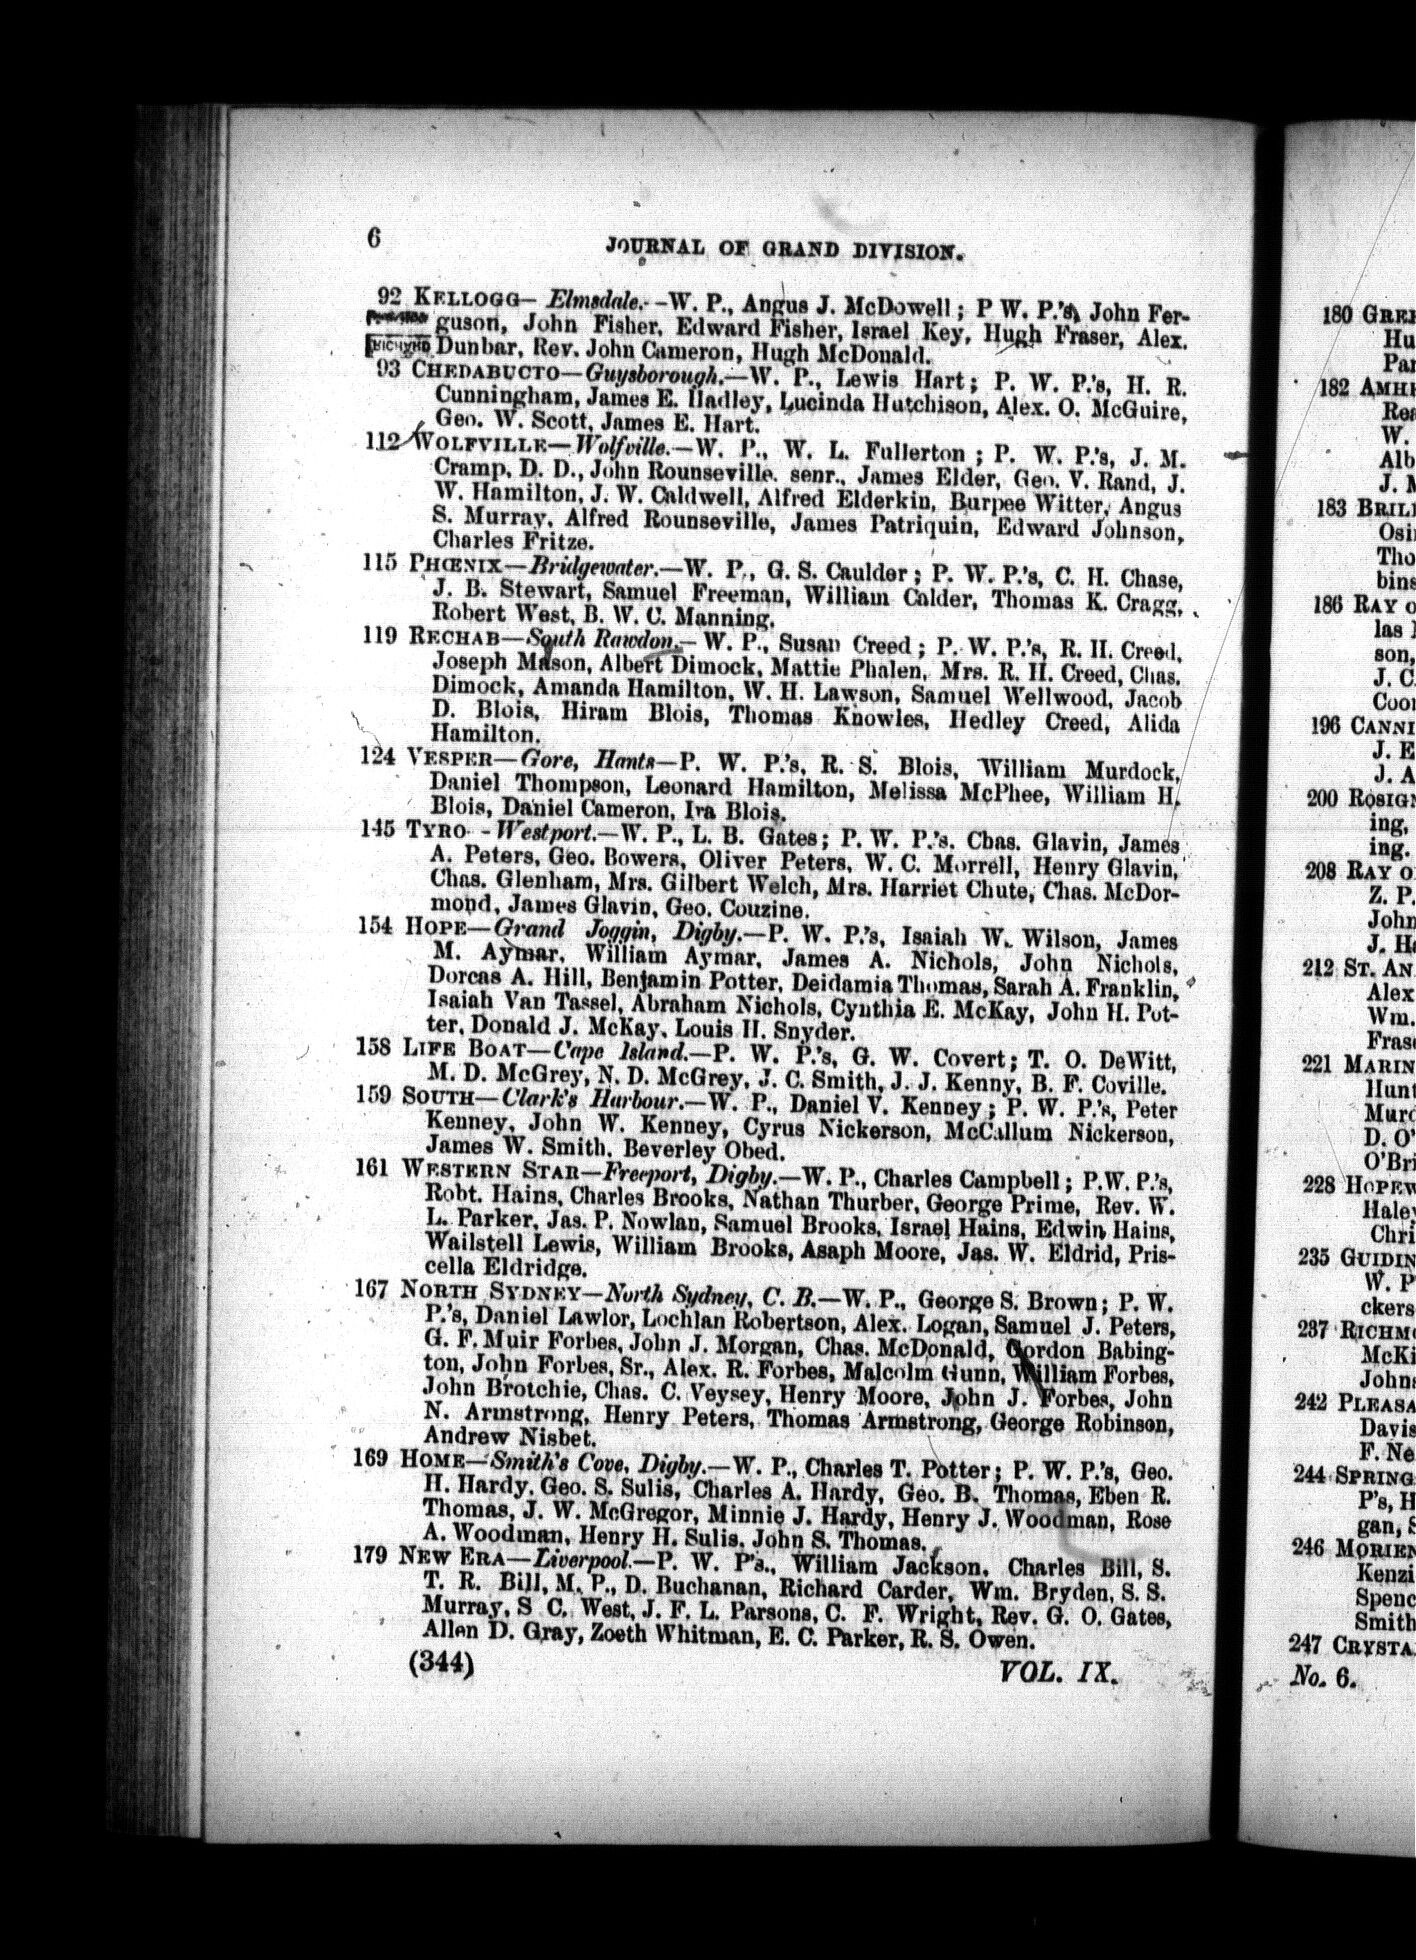 6
JOURNAL OF GRAND DIVISION.
92 KELLOGG— Elmsdale.--W. P., Angus J. McDowell ; P W. P.'s, John Fer-
guson, John Fisher, Edward Fisher, Israel Key, Hugh Fraser, Alex.
RICHARD Dunbar, Rev. John Cameron, Hugh McDonald.
93 CHEDABUCTO—Guysborough.—W. P., Lewis Hart; P. W. P.'s, H. R.
Cunningham, James E. Hadley, Lucinda Hutchison, Alex. O. McGuire,
Geo. W. Scott, James E. Hart.
112 WOLFVILLE—Wolfville.—W. P., W. L. Fullerton ; P. W. P.'s, J. M.
Cramp, D. D., John Rounseville. senr., James Elder, Geo. V. Rand, J.
W. Hamilton, J. W. Caldwell, Alfred Elderkin, Burpee Witter, Angus
S. Murray, Alfred Rounseville, James Patriquin, Edward Johnson,
Charles Fritze.
115 PHŒNIX—Bridgewater.—W. P., G. S. Caulder; P. W. P.'s, C. H. Chase,
J. B. Stewart, Samuel Freeman, William Calder, Thomas K. Cragg,
Robert West, B. W. C. Manning.
119 RECHAB—South Rawdon.—W. P., Susan Creed; P. W. P.'s, R. H. Creed,
Joseph Mason, Albert Dimock, Mattie Phalen, Mrs. R. H. Creed, Chas.
Dimock, Amanda Hamilton, W. H. Lawson, Samuel Wellwood, Jacob
D. Blois, Hiram Blois, Thomas Knowles, Hedley Creed, Alida
Hamilton.
124 VESPER—Gore, Hants—P. W. P.'s, R. S. Blois, William Murdock,
Daniel Thompson, Leonard Hamilton, Melissa McPhee, William H.
Blois, Daniel Cameron, Iva Blois.
145 TYRO--Westport.—W. P., L. B. Gates; P. W. P.'s. Chas. Glavin, James
A. Peters, Geo. Bowers, Oliver Peters, W. C. Morrell, Henry Glavin,
Chas. Glenham, Mrs. Gilbert Welch, Mrs. Harriet Chute, Chas. McDor-
mond, James Glavin, Geo. Couzine.
154 HOPE—Grand Joggin, Digby.—P. W. P.'s, Isaiah W. Wilson, James
M. Aymar, William Aymar, James A. Nichols, John Nichols,
Dorcas A. Hill, Benjamin Potter, Deidamia Thomas, Sarah A. Franklin,
Isaiah Van Tassel, Abraham Nichols, Cynthia E. McKay, John H. Pot-
ter, Donald J. McKay, Louis H. Snyder.
158 LIFE BOAT—Cape Island.—P. W. P.'s, G. W. Covert; T. O. DeWitt,
M. D. McGrey, N. D. McGrey, J. C. Smith, J. J. Kenny, B. F. Coville.
159 SOUTH—Clark's Harbour.—W. P., Daniel V. Kenney; P. W. P.'s, Peter
Kenney, John W. Kenney, Cyrus Nickerson, McCallum Nickerson,
James W. Smith, Beverley Obed.
161 WESTERN STAR—Freeport, Digby.—W. P., Charles Campbell; P.W. P.'s,
Robt. Hains, Charles Brooks, Nathan Thurber, George Prime, Rev. W.
L. Parker, Jas. P. Nowlan, Samuel Brooks, Israel Hains, Edwin Hains,
Wailstell Lewis, William Brooks, Asaph Moore, Jas. W. Eldrid, Pris-
cella Eldridge.
167 NORTH SYDNEY—North Sydney, C. B.—W. P., George S. Brown; P. W.
P.'s, Daniel Lawlor, Lochlan Robertson, Alex. Logan, Samuel J. Peters,
G. F. Muir Forbes, John J. Morgan, Chas. McDonald, Gordon Babing-
ton, John Forbes, Sr., Alex. R. Forbes, Malcolm Gunn, William Forbes,
John Brotchie, Chas. C. Veysey, Henry Moore, John J. Forbes, John
N. Armstrong, Henry Peters, Thomas Armstrong, George Robinson,
Andrew Nisbet.
169 HOME—Smith's Cove, Digby.—W. P., Charles T. Potter; P. W. P.'s, Geo.
H. Hardy, Geo. S. Sulis, Charles A. Hardy, Geo. B. Thomas, Eben R.
Thomas, J. W. McGregor, Minnie J. Hardy, Henry J. Woodman, Rose
A. Woodman, Henry H. Sulis, John S. Thomas.
179 NEW ERA—Liverpool.—P. W. P's., William Jackson, Charles Bill, S.
T. R. Bill, M. P., D. Buchanan, Richard Carder, Wm. Bryden, S. S.
Murray, S C. West, J. F. L. Parsons, C. F. Wright, Rev. G. O. Gates,
Allen D. Gray, Zoeth Whitman, E. C. Parker, R. S. Owen.
(344)
VOL. IX.
180 GREE
Hu
Par
182 AMHE
Rea
W.
Alb
J. M
183 BRILL
Osin
Tho
bins
186 RAY O
las
son,
J. C.
Coor
196 CANNI
J. E
J. A
200 ROSIGN
ing,
ing.
208 RAY O
Z. P.
John
J. Ha
212 ST. AN
Alex
Wm.
Fras
221 MARIN
Hunt
Murd
D. O'
O'Bri
228 HOPEW
Haley
Chri
235 GUIDIN
W. P
ckers
237 RICHMO
McKi
Johns
242 PLEASA
Davis
F. Ne
244 SPRING
P's, H
gan, S
246 MORIEN
Kenzi
Spenc
Smith
247 CRYSTA
No. 6.